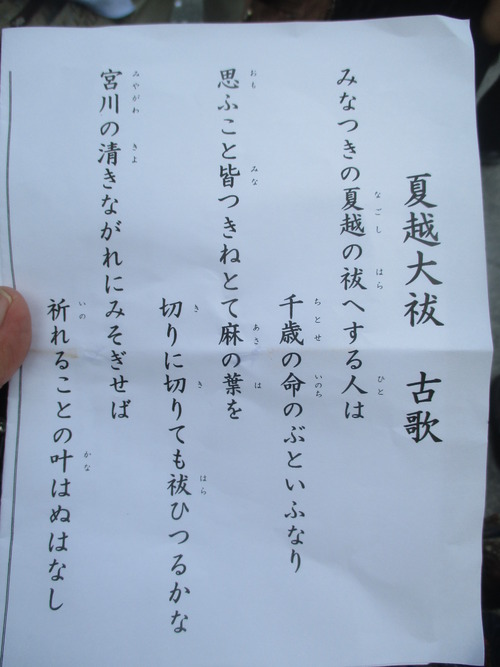 夏越大祓　古歌
みなつきの夏越の祓へする人は
千歳の命のぶといふなり
思ふこと皆つきねとて麻の葉を
切りに切りても祓ひつるかな
宮川の清きながれにみそぎせば
祈れることの叶はぬはなし